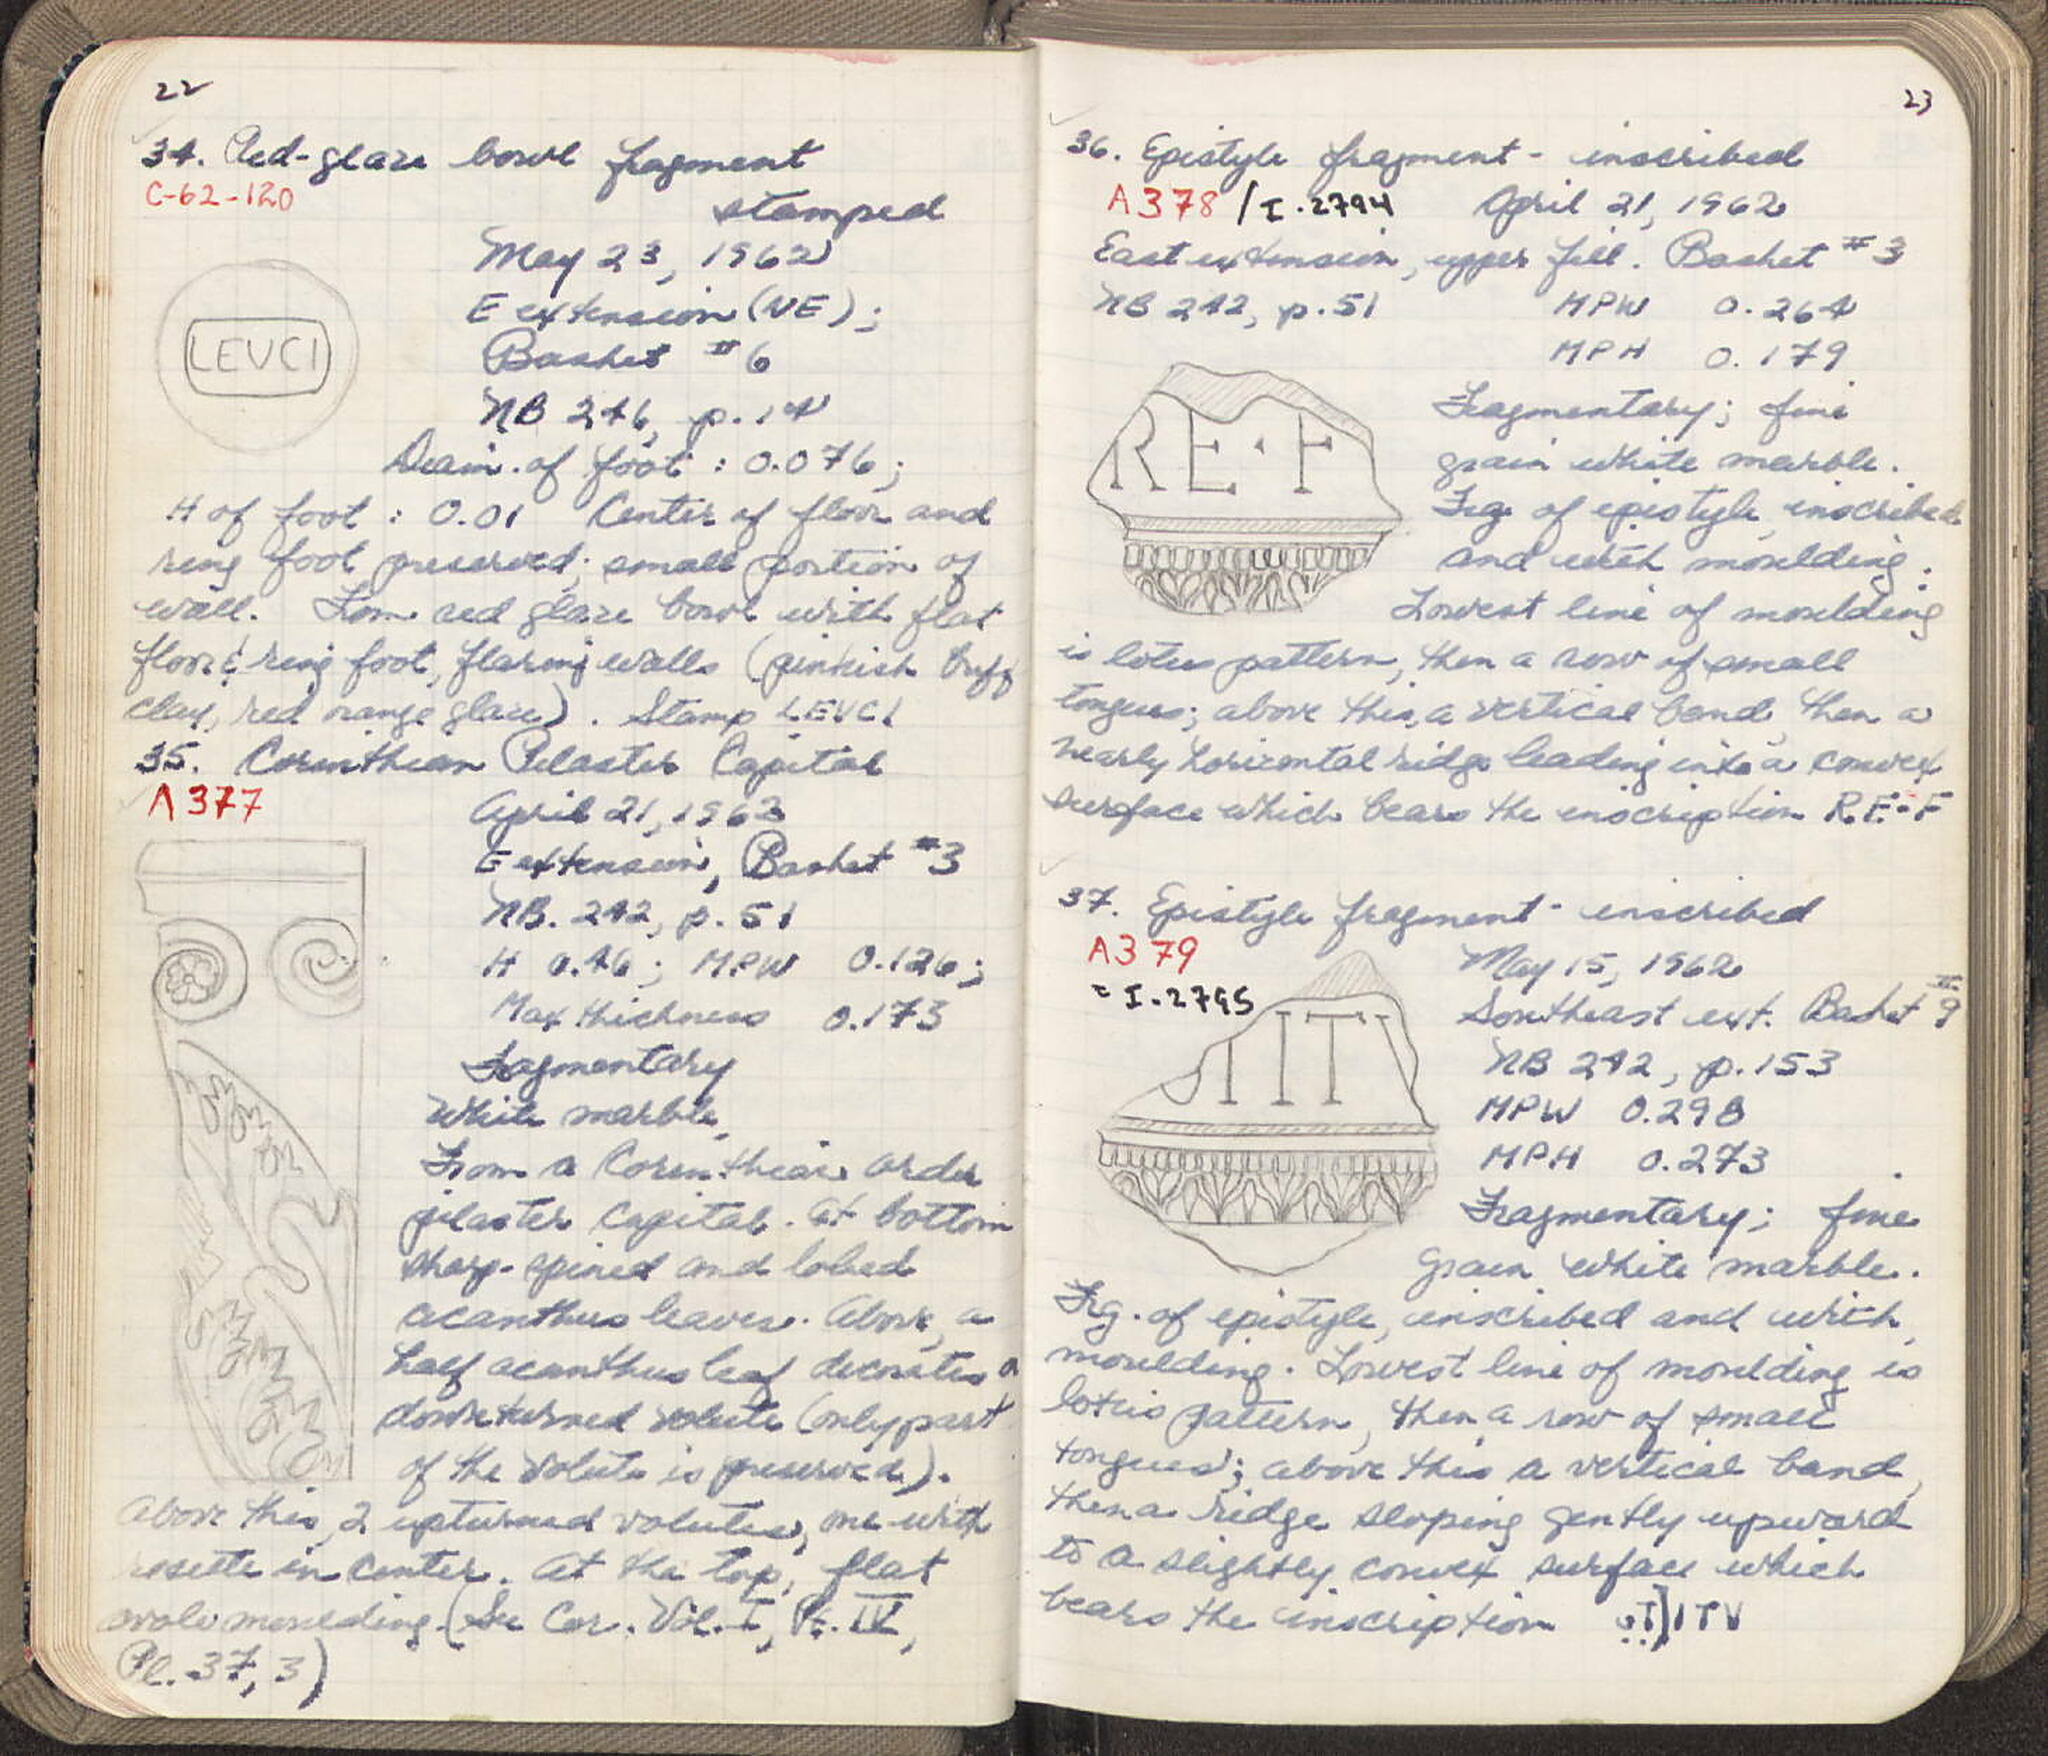 22
34. Red-glaze bowl fragment
C-62-120
stamped
May 23, 1962
E extension (NE);
LEVCI
Basket #6
NB 246, p. 14
Diam. of foot : 0.076;
H of foot : 0.01 Center of floor and
ring foot preserved; small portion of
wall. From red glaze bowl with flat
floor & ring foot, flaring walls (pinkish buff
clay, red orange glaze). Stamp LEVCI
35. Corinthian Pilaster Capital
A 377
April 21, 1962
E extension, Basket #3
NB. 242, p. 51
H 0.46; MPW 0.126;
Max thickness 0.173
Fragmentary
White marble.
From a Corinthian order
pilaster capital. At bottom
sharp-spined and lobed
acanthus leaves. Above, a
half acanthus leaf decorates a
downturned volute (only part
of the volute is preserved).
Above this, 2 upturned volutes, one with
rosette in center. At the top, flat
ovolo moulding. (See Cor. Vol. I, Pt. IV,
Pl. 37, 3)
23
36. Epistyle fragment - inscribed
A 378 / I.2794 April 21, 1962
East extension, upper fill. Basket #3
NB 242, p. 51 MPW 0.264
MPH 0.179
RE·F
Fragmentary; fine
grain white marble.
Frg. of epistyle, inscribed
and with moulding.
Lowest line of moulding
is lotus pattern, then a row of small
tongues; above this, a vertical band, then a
nearly horizontal ridge leading into a convex
surface which bears the inscription RE·F
37. Epistyle fragment - inscribed
A 379
= I.2795
May 15, 1962
Southeast ext. Basket #9
NB 242, p. 153
MPW 0.298
MPH 0.273
Fragmentary; fine
grain white marble.
Frg. of epistyle, inscribed and with
moulding. Lowest line of moulding is
lotus pattern, then a row of small
tongues; above this a vertical band,
then a ridge sloping gently upward
to a slightly convex surface which
bears the inscription ITV